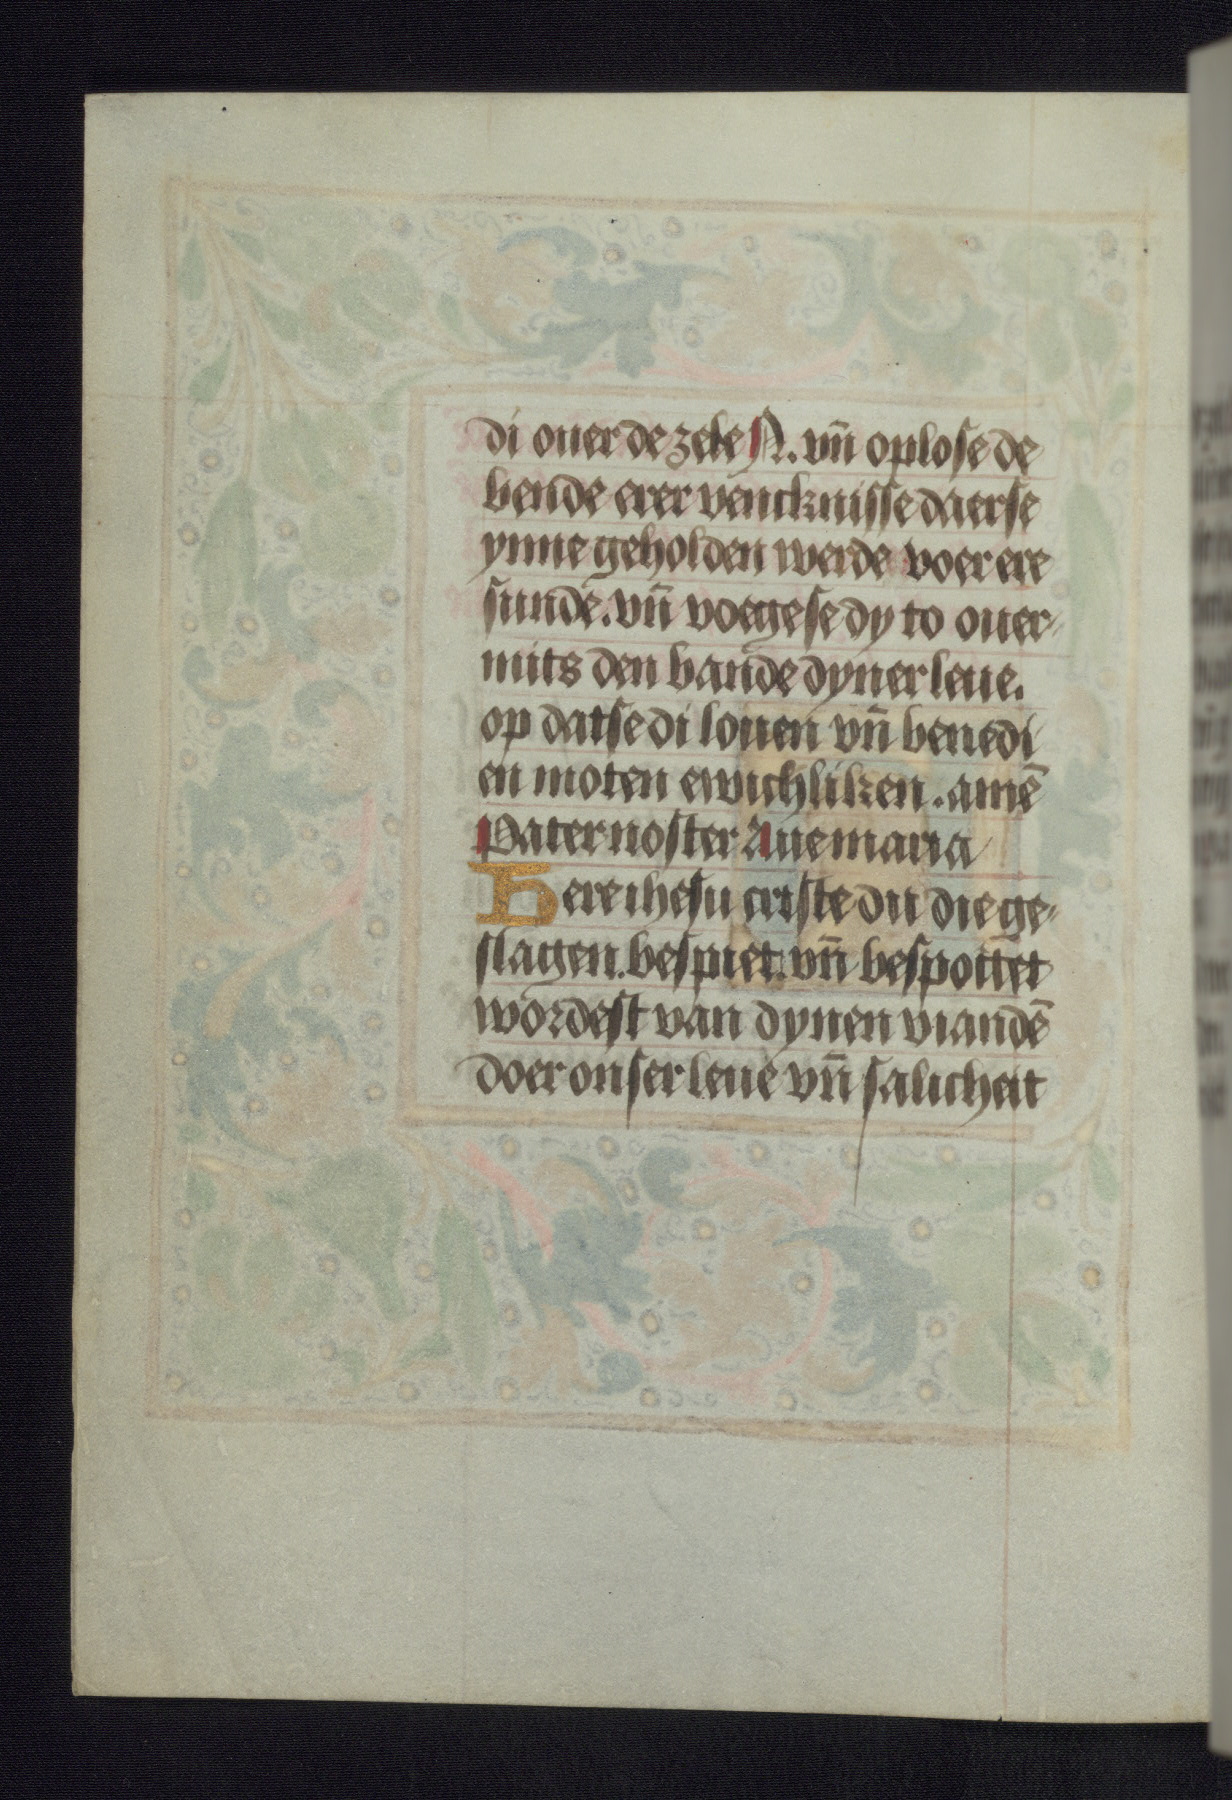 di ouer de zele N. vn̄ oplose de
bende erer vencknisse daer se
ynne geholden werde voer ere
sunde. vn̄ voege se dy to ouer-
mits den bande dyner leue.
op dat se di louen vn̄ benedi
en moten ewichliken. amē
Pater noster Aue maria
Here ihesu criste du die ge-
slagen. bespiet. vn̄ bespottet
wordest van dynen viandē
doer onser leue vn̄ salicheit